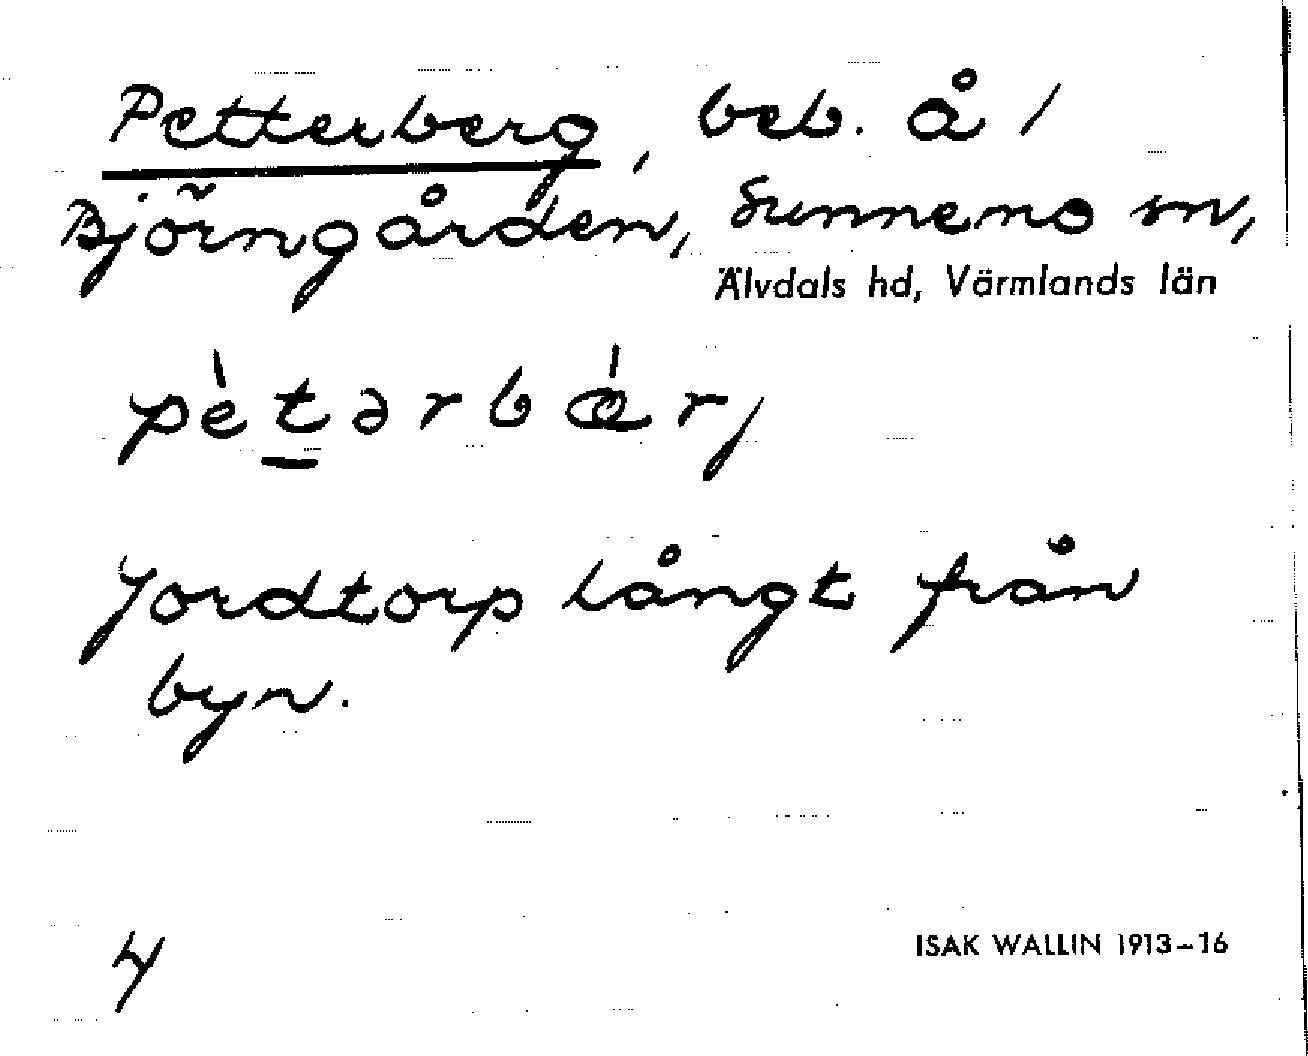 Petterberg, beb. å /
Björngården, Sunnemo sn,
Älvdals hd, Värmlands län
pètərbǿrj
Jordtorp långt från
byn.
4
ISAK WALLIN 1913–16